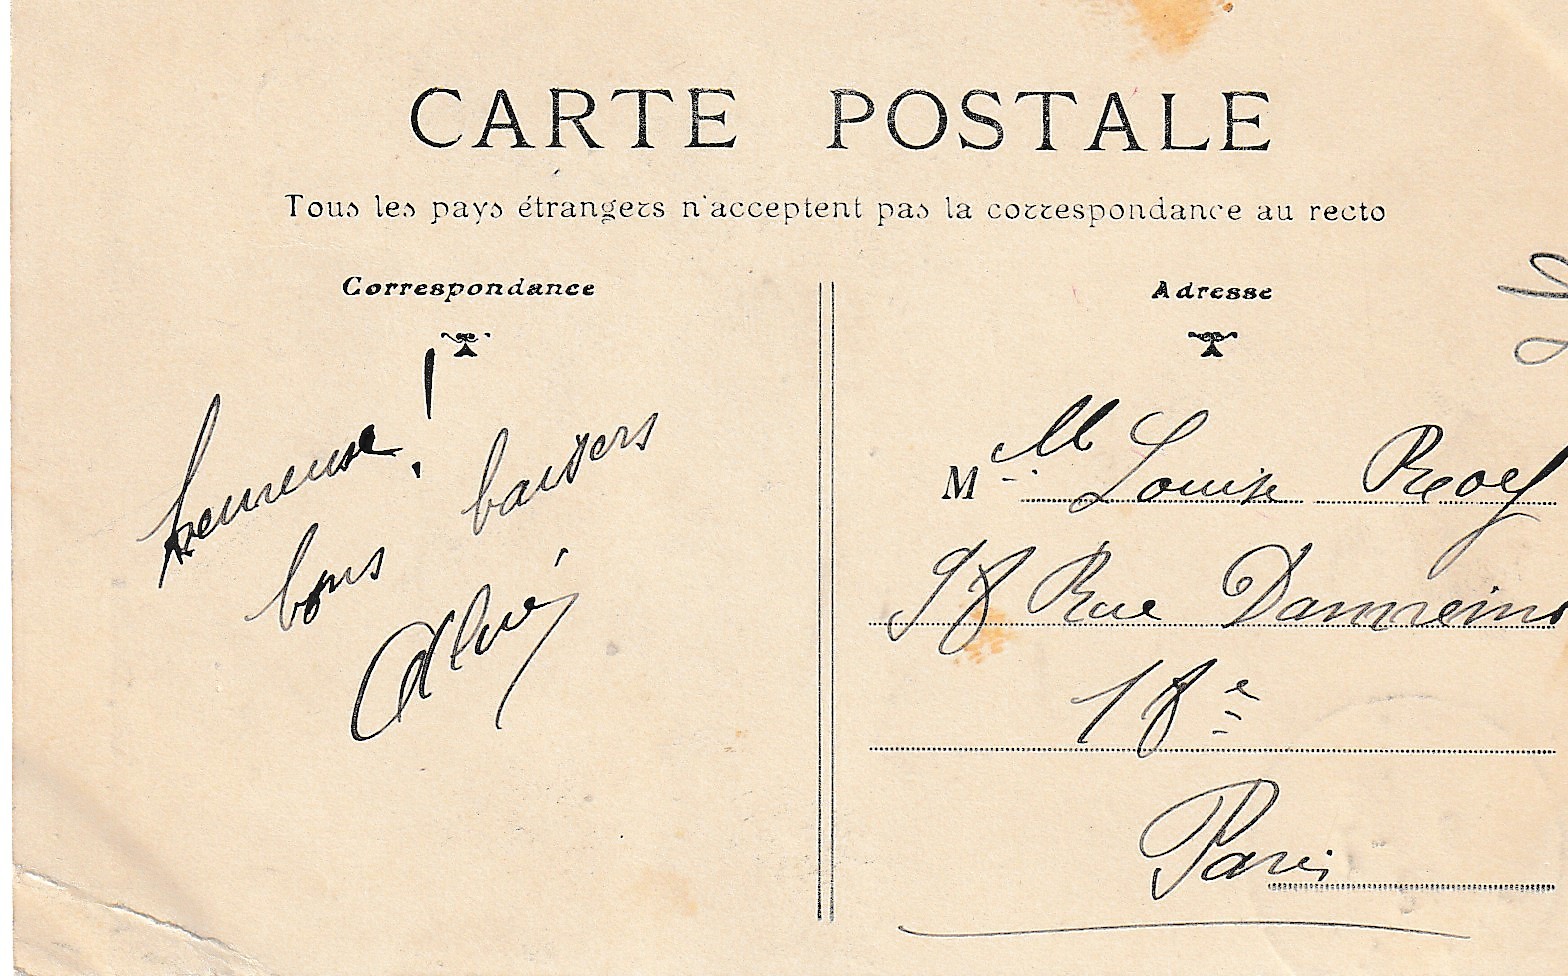 CARTE POSTALE
Tous les pays étrangers n'acceptent pas la correspondance au recto
Correspondance
heureuse !
bons baisers
Adresse
M lle Louise
98 Rue Damremo
18e
Paris